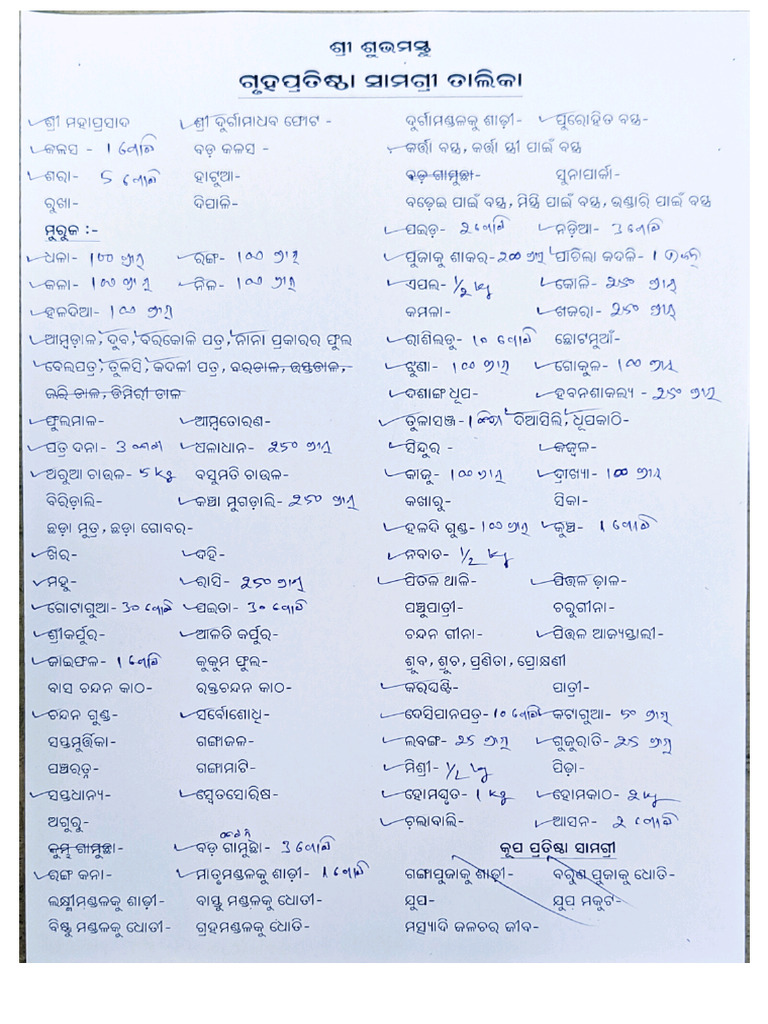 ଶ୍ରୀ ଶୁଭମସ୍ତୁ
ଗୃହପ୍ରତିଷ୍ଠା ସାମଗ୍ରୀ ତାଲିକା
ଶ୍ରୀ ମହାପ୍ରସାଦ ଶ୍ରୀ ଦୁର୍ଗାମାଧବ ଫୋଟ -
କଳସ - 1 ଗୋଟି ବଡ଼ କଳସ -
ଶରା - 5 ଗୋଟି ହାଟୁଆ-
ରୁଖା - ଦିପାଳି-
ମୁରୁଜ :-
ଧଳା - 100 ଗ୍ରାମ୍ ରଙ୍ଗ - 100 ଗ୍ରାମ୍
କଳା - 100 ଗ୍ରାମ୍ ନିଳ - 100 ଗ୍ରାମ୍
ହଳଦିଆ - 100 ଗ୍ରାମ୍
ଆମ୍ବଡ଼ାଳ, ଦୁବ, ବରକୋଳି ପତ୍ର, ନାନା ପ୍ରକାରର ଫୁଲ
ବେଲପତ୍ର, ତୁଳସି, କଦଳୀ ପତ୍ର, ବରଡାଳ, ଓସ୍ତଡାଳ,
ଜରି ଡାଳ, ଡିମିରୀ ଡାଳ
ଫୁଲମାଳ- ଆମ୍ବତୋରଣ-
ପତ୍ର ଦନା - 3 ଧଳାଧାନ - 250 ଗ୍ରାମ୍
ଅରୁଆ ଚାଉଳ - 5 kg ବସୁମତି ଚାଉଳ-
ବିରିଡ଼ାଲି- କଞ୍ଚା ମୁଗଡ଼ାଲି - 250 ଗ୍ରାମ୍
ଛଡ଼ା ମୁତ୍ର, ଛଡ଼ା ଗୋବର-
ଖିର- ଦହି-
ମହୁ- ରାସି- 250 ଗ୍ରାମ୍
ଗୋଟାଗୁଆ- 30 ଗୋଟି ପଇତା - 30 ଗୋଟି
ଶ୍ରୀକର୍ପୁର- ଆଳତି କର୍ପୁର-
ଜାଇଫଳ- 1 ଗୋଟି କୁକୁମ ଫୁଲ-
ବାସ ଚନ୍ଦନ କାଠ- ରକ୍ତଚନ୍ଦନ କାଠ-
ଚନ୍ଦନ ଗୁଣ୍ଡ- ସର୍ବୋଶୋଧି-
ସପ୍ତମୁର୍ତ୍ତିକା- ଗଙ୍ଗାଜଳ-
ପଞ୍ଚରତ୍ନ- ଗଙ୍ଗାମାଟି-
ସପ୍ତଧାନ୍ୟ- ସ୍ୱେତସୋରିଷ-
ଅଗୁରୁ-
କୁମ୍ଭ ଗାମୁଛା- ବଡ଼ ଗାମୁଛା- 3 ଗୋଟି
ରଙ୍ଗ କନା- ମାତୃମଣ୍ଡଳକୁ ଶାଢ଼ୀ- 1 ଗୋଟି
ଲକ୍ଷ୍ମୀମଣ୍ଡଳକୁ ଶାଢ଼ୀ- ବାସ୍ତୁ ମଣ୍ଡଳକୁ ଧୋତୀ-
ବିଷ୍ଣୁ ମଣ୍ଡଳକୁ ଧୋତୀ- ଗ୍ରହମଣ୍ଡଳକୁ ଧୋତି-
ଦୁର୍ଗାମଣ୍ଡଳକୁ ଶାଢ଼ୀ- ପୁରୋହିତ ବସ୍ତ୍ର-
କର୍ତ୍ତା ବସ୍ତ୍ର, କର୍ତ୍ତା ସ୍ତ୍ରୀ ପାଇଁ ବସ୍ତ୍ର
ବଡ଼ ଗାମୁଛା- ସୁନାପାର୍କା-
ବଢ଼େଇ ପାଇଁ ବସ୍ତ୍ର, ମିସ୍ତ୍ରି ପାଇଁ ବସ୍ତ୍ର, ଭଣ୍ଡାରି ପାଇଁ ବସ୍ତ୍ର
ପଇଡ଼ - 2 ଗୋଟି ନଡ଼ିଆ - 3 ଗୋଟି
ପୂଜାକୁ ଶାକର- 200 ଗ୍ରାମ୍ ପାଚିଲା କଦଳି- 1
ଏପଲ- 1/2 kg କୋଳି - 250 ଗ୍ରାମ୍
କମଳା - ଖଜରା - 250 ଗ୍ରାମ୍
ରାଶିଲଡୁ- 10 ଗୋଟି ଛୋଟମୁଆଁ-
ଝୁଣା - 100 ଗ୍ରାମ୍ ଗୋକୁଳ - 100 ଗ୍ରାମ୍
ଦଶାଙ୍ଗ ଧୂପ- ହବନଶାକଲ୍ୟ - 250 ଗ୍ରାମ୍
ତୁଳାସଞ୍ଜ- ଦିଆସିଲି, ଧୂପକାଠି-
ସିନ୍ଦୁର - କଜ୍ୱଳ-
କାଜୁ - 100 ଗ୍ରାମ୍ ଦ୍ରାଖ୍ୟା- 100 ଗ୍ରାମ୍
କଖାରୁ- ସିକା-
ହଳଦି ଗୁଣ୍ଡ- 100 ଗ୍ରାମ୍ କୁଞ୍ଚ- 1 ଗୋଟି
ନବାତ- 1/2 kg
ପିତଳ ଥାଳି- ପିତ୍ତଳ ଢ଼ାଳ-
ପଞ୍ଚୁପାତ୍ରୀ- ଚରୁଗୀନା-
ଚନ୍ଦନ ଗୀନା- ପିତ୍ତଳ ଆଜ୍ୟସ୍ତାଲୀ-
ଶ୍ରୁବ, ଶ୍ରୁଚ, ପ୍ରଣିତା, ପ୍ରୋକ୍ଷଣୀ
କରଘଣ୍ଟି- ପାତ୍ରୀ-
ଦେସିପାନପତ୍ର- 10 ଗୋଟି କଟାଗୁଆ- 50 ଗ୍ରାମ୍
ଲବଙ୍ଗ - 25 ଗ୍ରାମ୍ ଗୁଜୁରାତି- 25 ଗ୍ରାମ୍
ମିଶ୍ରୀ- 1/2 kg ପିଢ଼ା-
ହୋମଘୃତ- 1 kg ହୋମକାଠ- 2 kg
ଚଲାବାଲି- ଆସନ- 2 ଗୋଟି
କୂପ ପ୍ରତିଷ୍ଠା ସାମଗ୍ରୀ
ଗଙ୍ଗାପୂଜାକୁ ଶାଢ଼ୀ- ବରୁଣ ପୂଜାକୁ ଧୋତି-
ଯୁପ- ଯୁପ ମକୁଟ-
ମତ୍ସ୍ୟାଦି ଜଳଚର ଜୀବ-